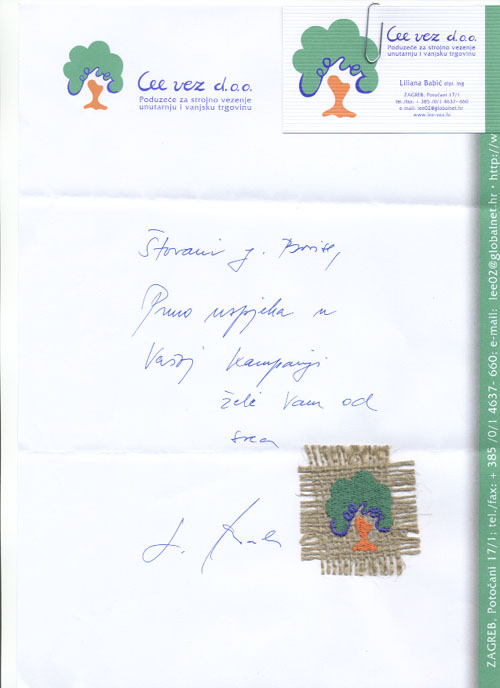 Lee vez d.o.o.
Poduzeće za strojno vezenje
unutarnju i vanjsku trgovinu
Lee vez
Lee vez d.o.o.
Poduzeće za strojno vezenje
unutarnju i vanjsku trgovinu
Lee vez
Liliana Babić dipl. ing
ZAGREB, Potočani 17/1
tel./fax: + 385 /0/1 4637- 660
e-mail: lee02@globalnet.hr
www.lee-vez.hr
Štovani g. Borise,
Puno uspjeha u
Vašoj kampanji
želi Vam od
srca
Lee vez
ZAGREB, Potočani 17/1; tel./fax: + 385 /0/1 4637- 660; e-mail: lee02@globalnet.hr • http://w